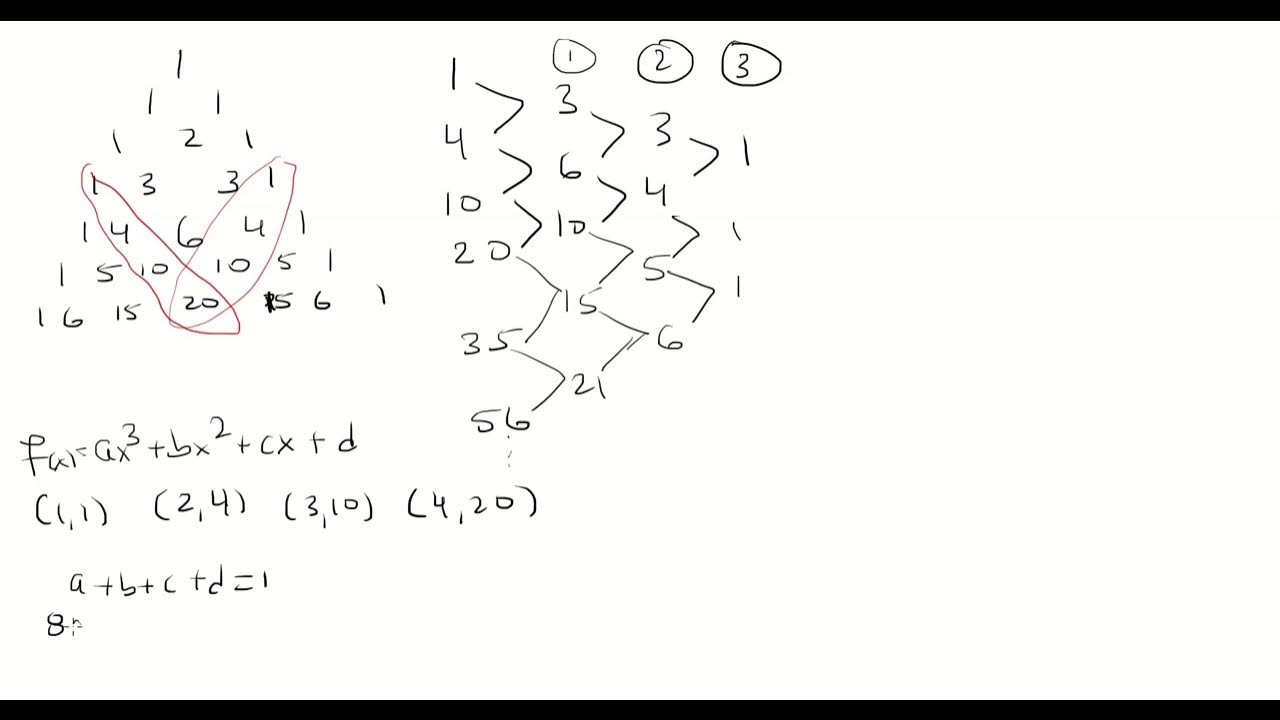 1
1 1
1 2 1
1 3 3 1
1 4 6 4 1
1 5 10 10 5 1
1 6 15 20 15 6 1
① ② ③
1
3
3
4
1
6
4
10
10
1
20
5
1
15
35
6
21
56
f(x)=ax³+bx²+cx+d
(1,1) (2,4) (3,10) (4,20)
a+b+c+d=1
8